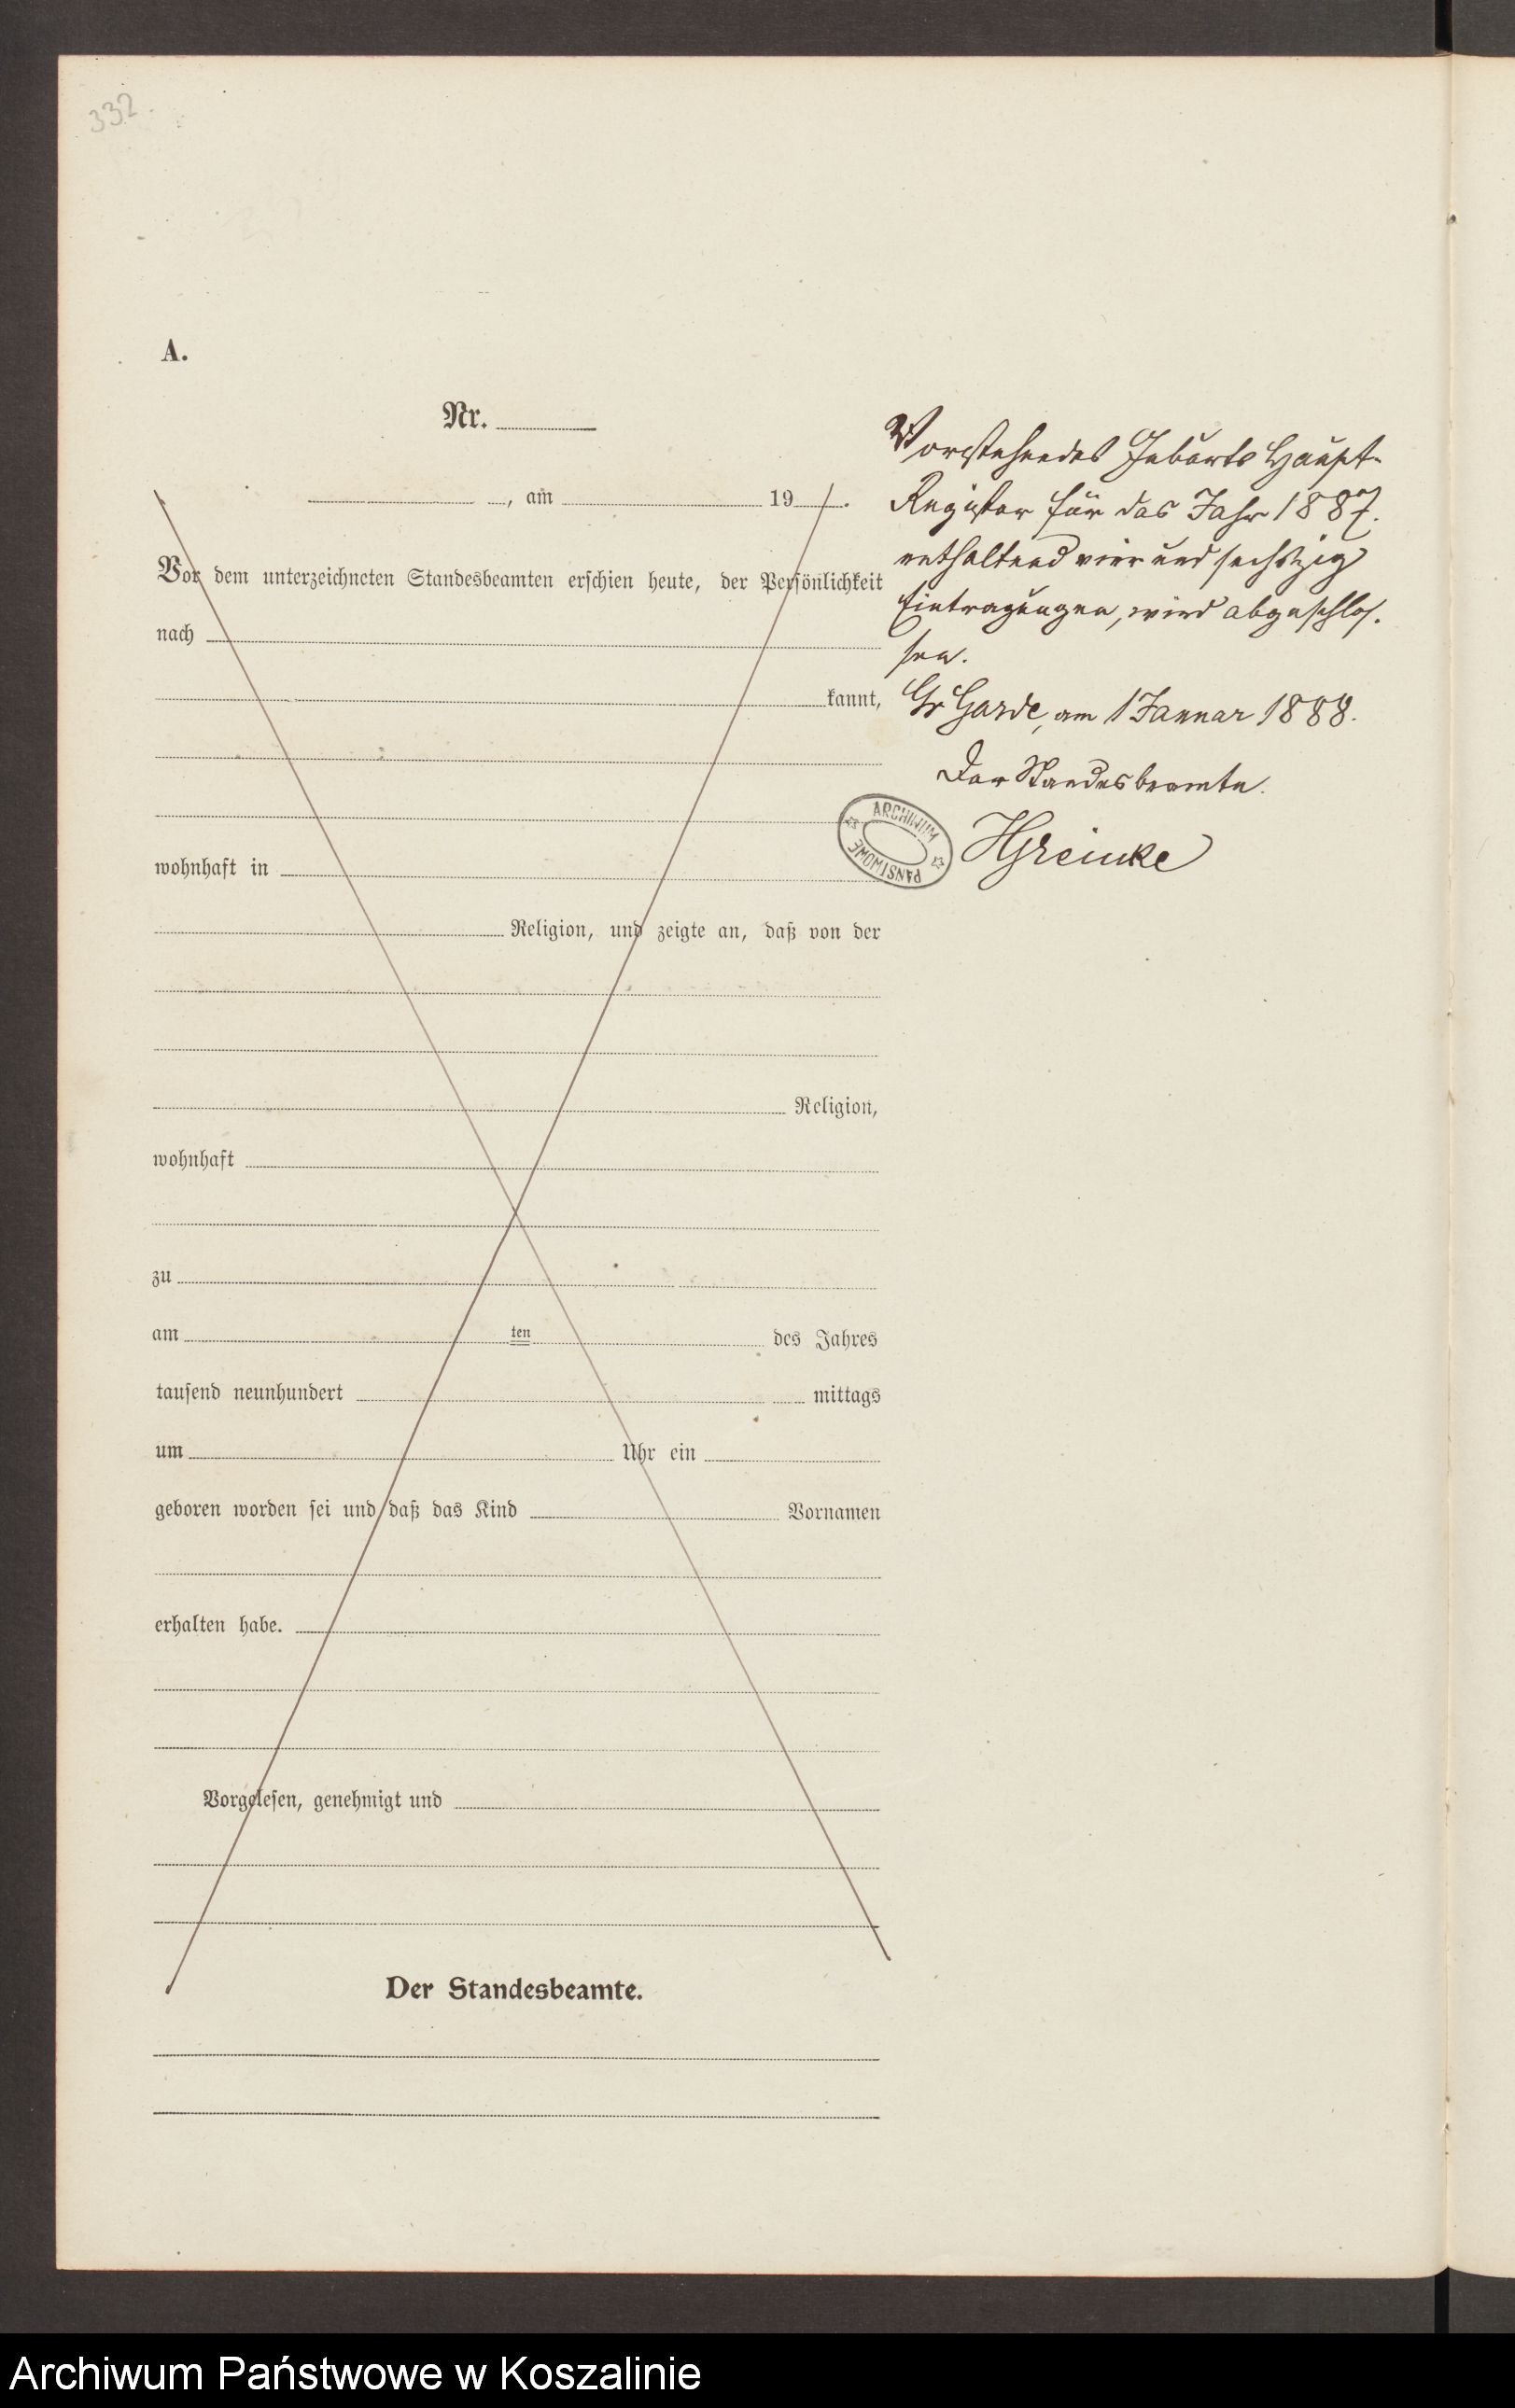 332.
A.
Nr.
, am 19 .
Vor dem unterzeichneten Standesbeamten erschien heute, der Persönlichkeit
nach
kannt,
wohnhaft in
Religion, und zeigte an, daß von der
Religion,
wohnhaft
zu
am ten des Jahres
tausend neunhundert mittags
um Uhr ein
geboren worden sei und daß das Kind Vornamen
erhalten habe.
Vorgelesen, genehmigt und
Der Standesbeamte.
Vorstehendes Geburts Haupt-
Register für das Jahr 1887.
enthaltend vier und sechszig
Eintragungen, wird abgeschlos-
sen.
Gr Garde, am 1 Januar 1888.
Der Standesbeamte.
ARCHIWUM
PAŃSTWOWE
Archiwum Państwowe w Koszalinie